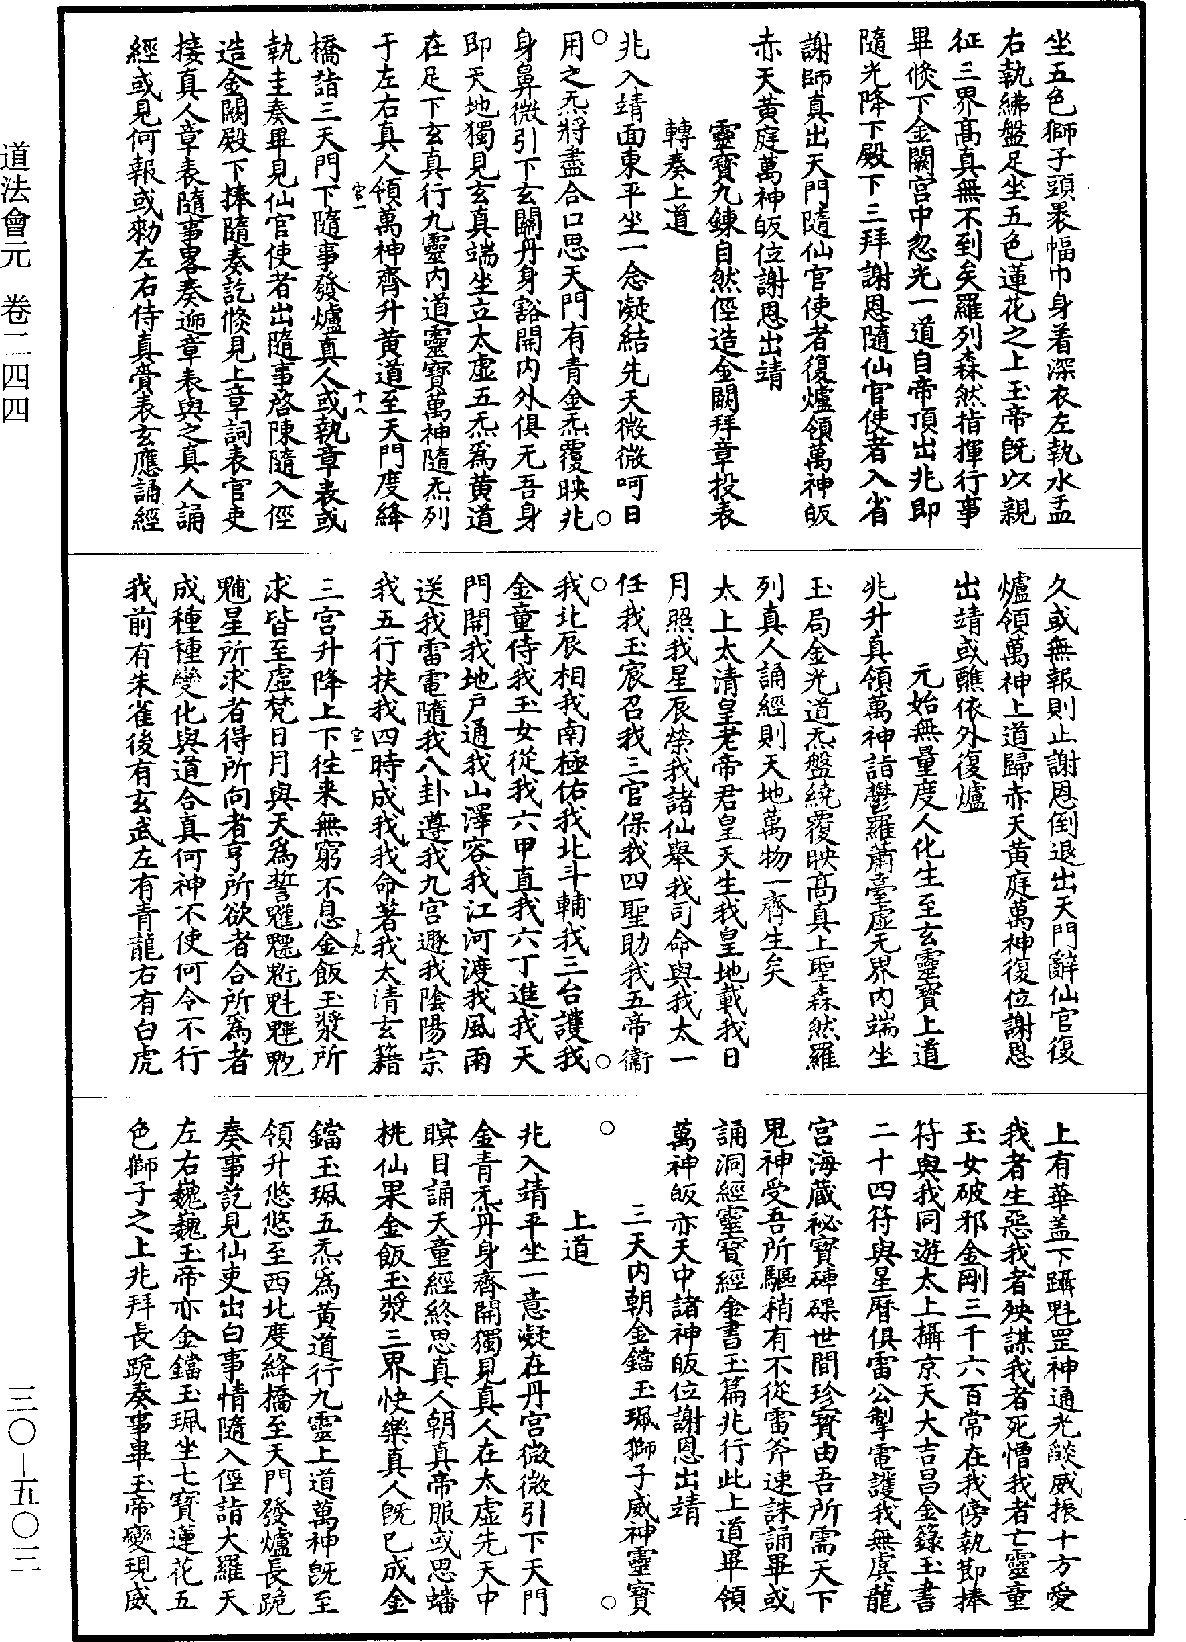 道法會元 卷二四四
三〇—五〇三
坐五色獅子頭褁幅巾身着深衣左執水盂
右執紼盤足坐五色蓮花之上玉帝旣以親
征三界髙真無不到矣羅列森然指揮行事
畢倏下金闕宫中忽光一道自帝頂出兆即
隨光降下殿下三拜謝恩隨仙官使者入省
謝師真出天門隨仙官使者復爐領萬神皈
赤天黄庭萬神皈位謝恩出靖
靈寳九鍊自然徑造金闕拜章投表
轉奏上道
兆入靖面東平坐一念凝結先天微微呵日
用之炁將盡合口思天門有青金炁覆映兆
身鼻微引下玄關丹身豁開内外俱无吾身
即天地獨見玄真端坐立太虚五炁爲黄道
在足下玄真行九靈内道靈寳萬神隨炁列
于左右真人領萬神齊升黄道至天門度絳
空一
十八
橋詣三天門下隨事發爐真人或執章表或
執圭奏畢見仙官使者出隨事啓陳隨入徑
造金闕殿下捧隨奏訖倏見上章詞表官吏
接真人章表隨事畧奏迎章表與之真人誦
經或見何報或勑左右侍真賷表玄應誦經
久或無報則止謝恩倒退出天門辭仙官復
爐領萬神上道歸赤天黄庭萬神復位謝恩
出靖或醮依外復爐
元始無量度人化生至玄靈寳上道
兆升真領萬神詣鬱羅蕭臺虚无界内端坐
玉局金光道炁盤繞覆映髙真上聖森然羅
列真人誦經則天地萬物一齊生矣
太上太清皇老帝君皇天生我皇地載我日
月照我星辰榮我諸仙舉我司命與我太一
任我玉宸召我三官保我四聖助我五帝衛
我北辰相我南極佑我北斗輔我三台護我
金童侍我玉女從我六甲直我六丁進我天
門開我地户通我山澤容我江河渡我風雨
送我雷電隨我八卦遵我九宫遯我陰陽宗
我五行扶我四時成我我命著我太清玄籍
空一
十九
三宫升降上下徃来無窮不息金飯玉漿所
求皆至虚梵日月與天爲誓魓䰢魒魁䰡魓
魓星所求者得所向者亨所欲者合所爲者
成種種變化與道合真何神不使何令不行
我前有朱雀後有玄武左有青龍右有白虎
上有華盖下躡魁罡神通光燄威振十方愛
我者生惡我者殃謀我者死憎我者亡靈童
玉女破邪金剛三千六百常在我傍執節捧
符與我同遊太上攝京天大吉昌金籙玉書
二十四符與星曆俱雷公掣電護我無虞龍
宫海藏秘寳磚磲世間珍寳由吾所需天下
鬼神受吾所驅稍有不從雷斧速誅誦畢或
誦洞經靈寳經金書玉篇兆行此上道畢領
萬神皈赤天中諸神皈位謝恩出靖
三天内朝金鐺玉珮獅子威神靈寳
上道
兆入靖平坐一意凝在丹宫微微引下天門
金青炁丹身齊開獨見真人在太虚先天中
瞑目誦天童經終思真人朝真帝服或思蟠
桃仙果金飯玉漿三界快樂真人旣已成金
鐺玉珮五炁爲黄道行九靈上道萬神旣至
領升悠悠至西北度絳橋至天門發爐長跪
奏事訖見仙吏出白事情隨入徑詣大羅天
左右巍巍玉帝亦金鐺玉珮坐七寳蓮花五
色獅子之上兆拜長跪奏事畢玉帝變現威